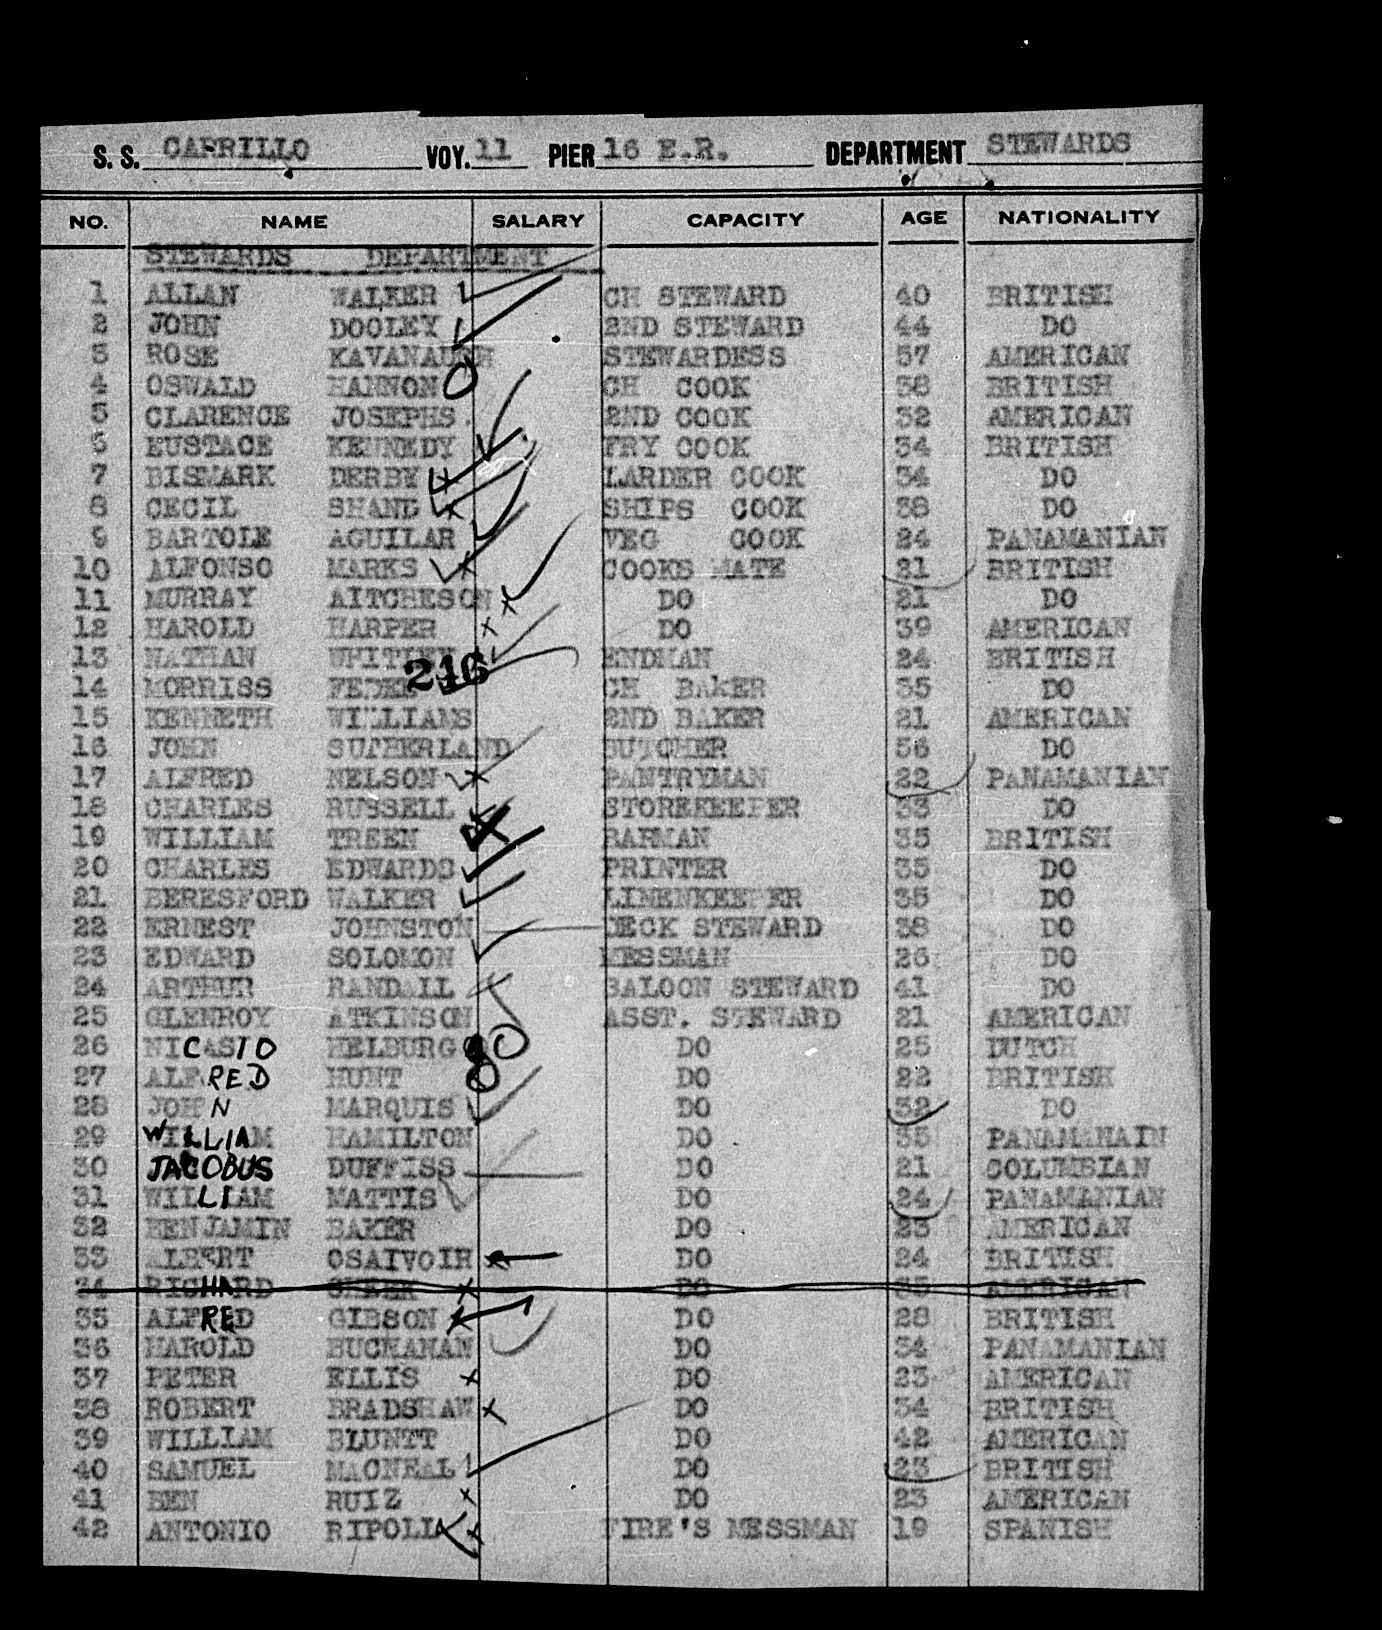 S. S. CARRILLO VOY. 11 PIER 16 E.R. DEPARTMENT STEWARDS
NO. NAME SALARY CAPACITY AGE NATIONALITY
STEWARDS DEPARTMENT
1 ALLAN WALKER CH STEWARD 40 BRITISH
2 JOHN DOOLEY 2ND STEWARD 44 DO
3 ROSE KAVANAUGH STEWARDESS 57 AMERICAN
4 OSWALD HANNON CH COOK 38 BRITISH
5 CLARENCE JOSEPHS 2ND COOK 32 AMERICAN
6 EUSTACE KENNEDY FRY COOK 34 BRITISH
7 BISMARK DERBY LARDER COOK 34 DO
8 CECIL SHAND SHIPS COOK 38 DO
9 BARTOLE AGUILAR VEG COOK 24 PANAMANIAN
10 ALFONSO MARKS COOKS MATE 21 BRITISH
11 MURRAY AITCHESON DO 21 DO
12 HAROLD HARPER DO 39 AMERICAN
13 NATHAN ENDMAN 24 BRITISH
216
14 MORRISS CH BAKER 35 DO
15 KENNETH WILLIAMS 2ND BAKER 21 AMERICAN
16 JOHN SUTHERLAND BUTCHER 56 DO
17 ALFRED NELSON PANTRYMAN 22 PANAMANIAN
18 CHARLES RUSSELL STOREKEEPER 33 DO
19 WILLIAM TREEN BARMAN 35 BRITISH
20 CHARLES EDWARDS PRINTER 35 DO
21 BERESFORD WALKER LINENKEEPER 35 DO
22 ERNEST JOHNSTON DECK STEWARD 38 DO
23 EDWARD SOLOMON MESSMAN 26 DO
24 ARTHUR RANDALL SALOON STEWARD 41 DO
25 GLENROY ATKINSON ASST. STEWARD 21 AMERICAN
26 NICASIO HELBURG DO 25 DUTCH
27 ALFRED HUNT DO 22 BRITISH
28 JOHN MARQUIS DO 32 DO
29 WILLIAM HAMILTON DO 35 PANAMANAIN
30 JACOBUS DUFFISS DO 21 COLUMBIAN
31 WILLIAM MATTIS DO 24 PANAMANIAN
32 BENJAMIN BAKER DO 23 AMERICAN
33 ALBERT OSAIVOIR DO 24 BRITISH
34 RICHARD DO 35 AMERICAN
35 ALFRED GIBSON DO 28 BRITISH
36 HAROLD BUCHANAN DO 34 PANAMANIAN
37 PETER ELLIS DO 23 AMERICAN
38 ROBERT BRADSHAW DO 34 BRITISH
39 WILLIAM BLUNTT DO 42 AMERICAN
40 SAMUEL MACNEAL DO 23 BRITISH
41 BEN RUIZ DO 23 AMERICAN
42 ANTONIO RIPOLL FIRE'S MESSMAN 19 SPANISH